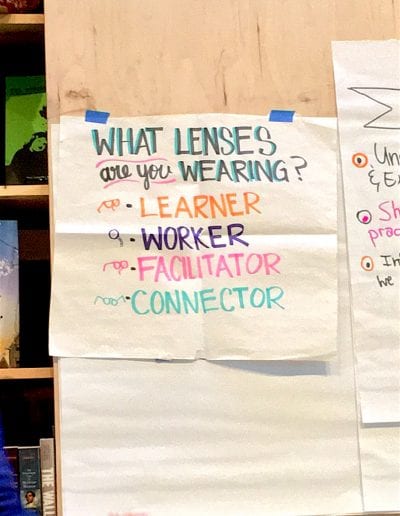 WHAT LENSES
are you WEARING?
LEARNER
WORKER
FACILITATOR
CONNECTOR
& 
we